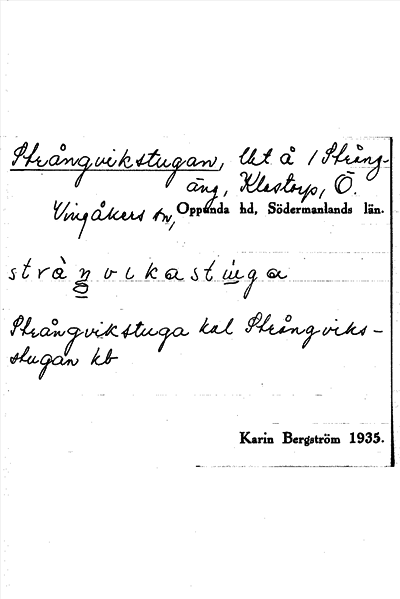 Strångvikstugan, lht å 1 Strång-
äng, Klastorp, Ö.
Vingåkers sn, Oppunda hd, Södermanlands län.
stràŋvikastùga
Strångvikstuga kal Strångviks-
stugan kb
Karin Bergström 1935.